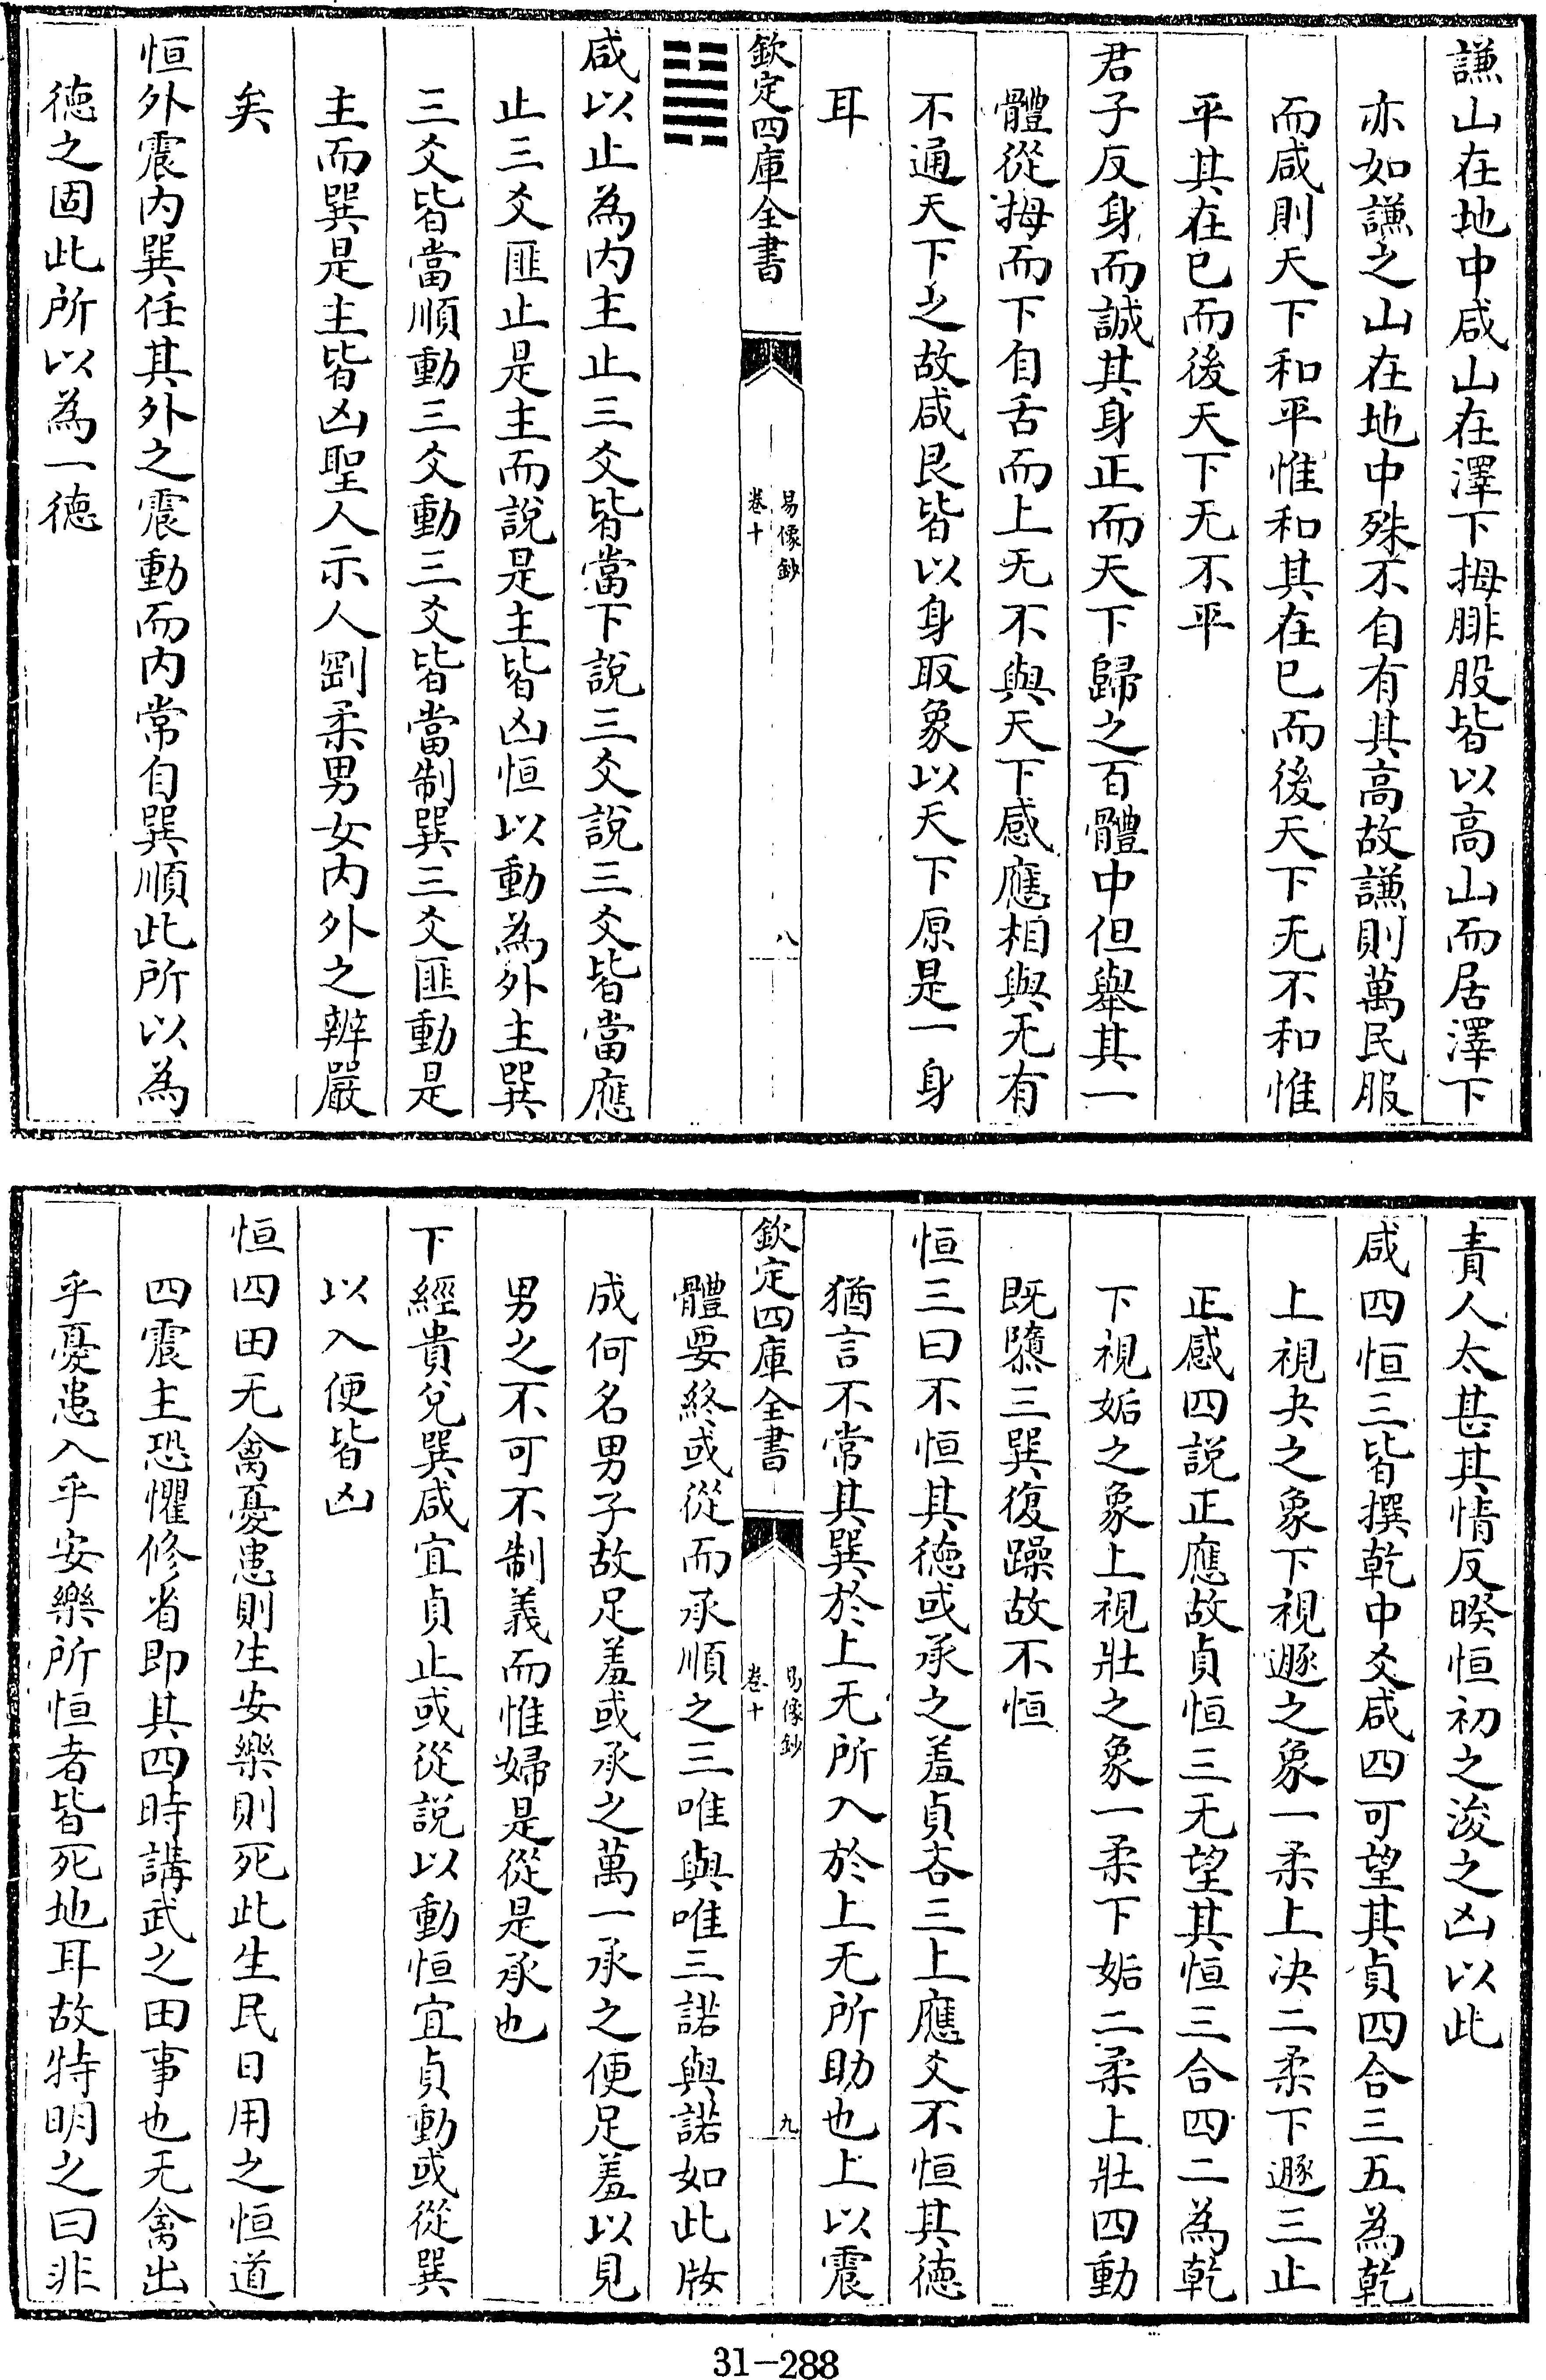 謙山在地中咸山在澤下拇腓股皆以高山而居澤下
亦如謙之山在地中殊不自有其高故謙則萬民服
而咸則天下和平惟和其在已而後天下无不和惟
平其在已而後天下无不平
君子反身而誠其身正而天下歸之百體中但舉其一
體從拇而下自舌而上无不與天下感應相與无有
不通天下之故咸艮皆以身取象以天下原是一身
耳
欽定四庫全書
易像鈔
卷十
八
咸以止為内主止三爻皆當下說三爻說三爻皆當應
止三爻匪止是主而說是主皆凶恒以動為外主巽
三爻皆當順動三爻動三爻皆當制巽三爻匪動是
主而巽是主皆凶聖人示人剛柔男女内外之辨嚴
矣
恒外震内巽任其外之震動而内常自巽順此所以為
徳之固此所以為一徳
責人太甚其情反暌恒初之浚之凶以此
咸四恒三皆撰乾中爻咸四可望其貞四合三五為乾
上視夬之象下視遯之象一柔上决二柔下遯三止
正感四説正應故貞恒三无望其恒三合四二為乾
下視姤之象上視壯之象一柔下姤二柔上壯四動
既隳三巽復躁故不恒
恒三曰不恒其徳或承之羞貞吝三上應爻不恒其徳
猶言不常其巽於上无所入於上无所助也上以震
欽定四庫全書
易像鈔
卷十
九
體要終或從而承順之三唯與唯三諾與諾如此牧
成何名男子故足羞或承之萬一承之便足羞以見
男之不可不制義而惟婦是從是承也
下經貴兌巽咸宜貞止或從説以動恒宜貞動或從巽
以入便皆凶
恒四田无禽憂患則生安樂則死此生民日用之恒道
四震主恐懼修省即其四時講武之田事也无禽出
乎憂患入乎安樂所恒者皆死地耳故特明之曰非
31-288